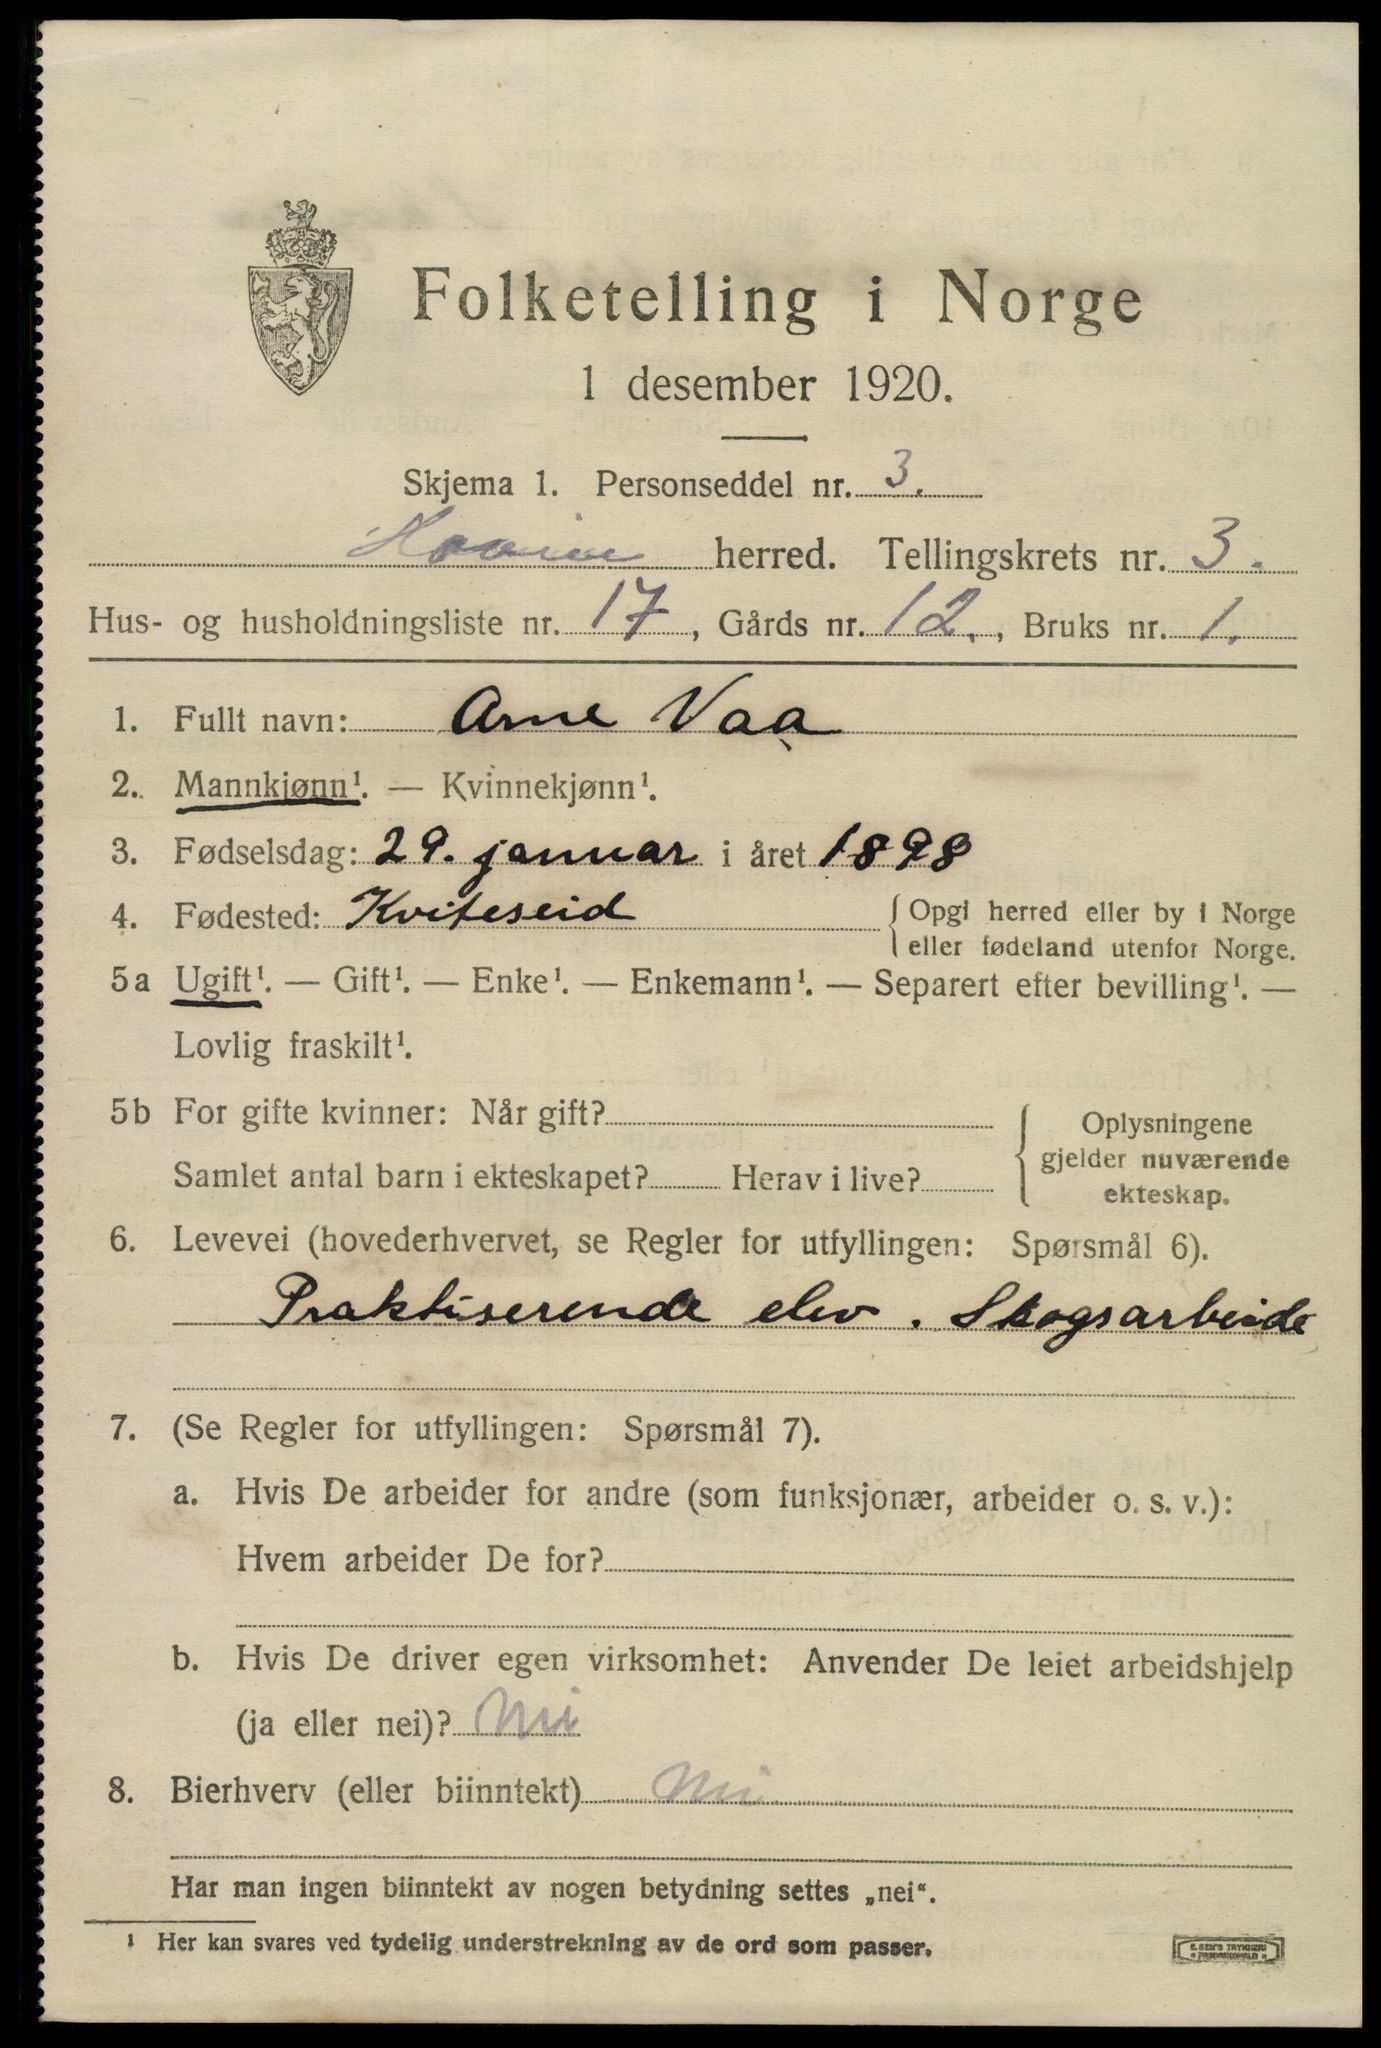 Folketelling i Norge
1 desember 1920.
Skjema 1. Personseddel nr. 3.
herred. Tellingskrets nr. 3.
Hus- og husholdningsliste nr. 17, Gårds nr. 12., Bruks nr. 1.
1. Fullt navn: Arne Vaa
2. Mannkjønn¹. — Kvinnekjønn¹.
3. Fødselsdag: 29. januar i året 1898
4. Fødested: Kviteseid { Opgi herred eller by i Norge
eller fødeland utenfor Norge.
5a Ugift¹. — Gift¹. — Enke¹. — Enkemann¹. — Separert efter bevilling¹. —
Lovlig fraskilt¹.
5b For gifte kvinner: Når gift?
Samlet antal barn i ekteskapet? Herav i live?
{ Oplysningene
gjelder nuværende
ekteskap.
6. Levevei (hovederhvervet, se Regler for utfyllingen: Spørsmål 6).
Praktiserende elev. Skogsarbeide
7. (Se Regler for utfyllingen: Spørsmål 7).
a. Hvis De arbeider for andre (som funksjonær, arbeider o. s. v.):
Hvem arbeider De for?
b. Hvis De driver egen virksomhet: Anvender De leiet arbeidshjelp
(ja eller nei)? Nei
8. Bierhverv (eller biinntekt) Nei
Har man ingen biinntekt av nogen betydning settes „nei“.
¹ Her kan svares ved tydelig understrekning av de ord som passer.